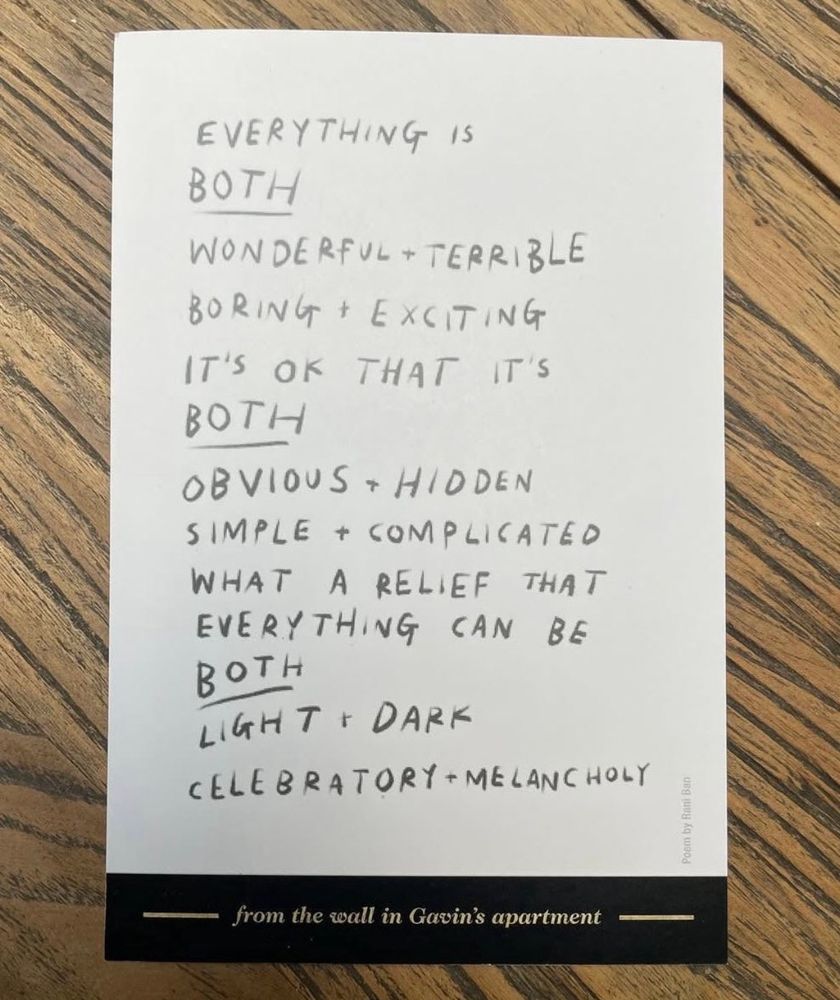 EVERYTHING IS
BOTH
WONDERFUL + TERRIBLE
BORING + EXCITING
IT'S OK THAT IT'S
BOTH
OBVIOUS + HIDDEN
SIMPLE + COMPLICATED
WHAT A RELIEF THAT
EVERYTHING CAN BE
BOTH
LIGHT + DARK
CELEBRATORY + MELANCHOLY
Poem by Rani Ban
from the wall in Gavin's apartment